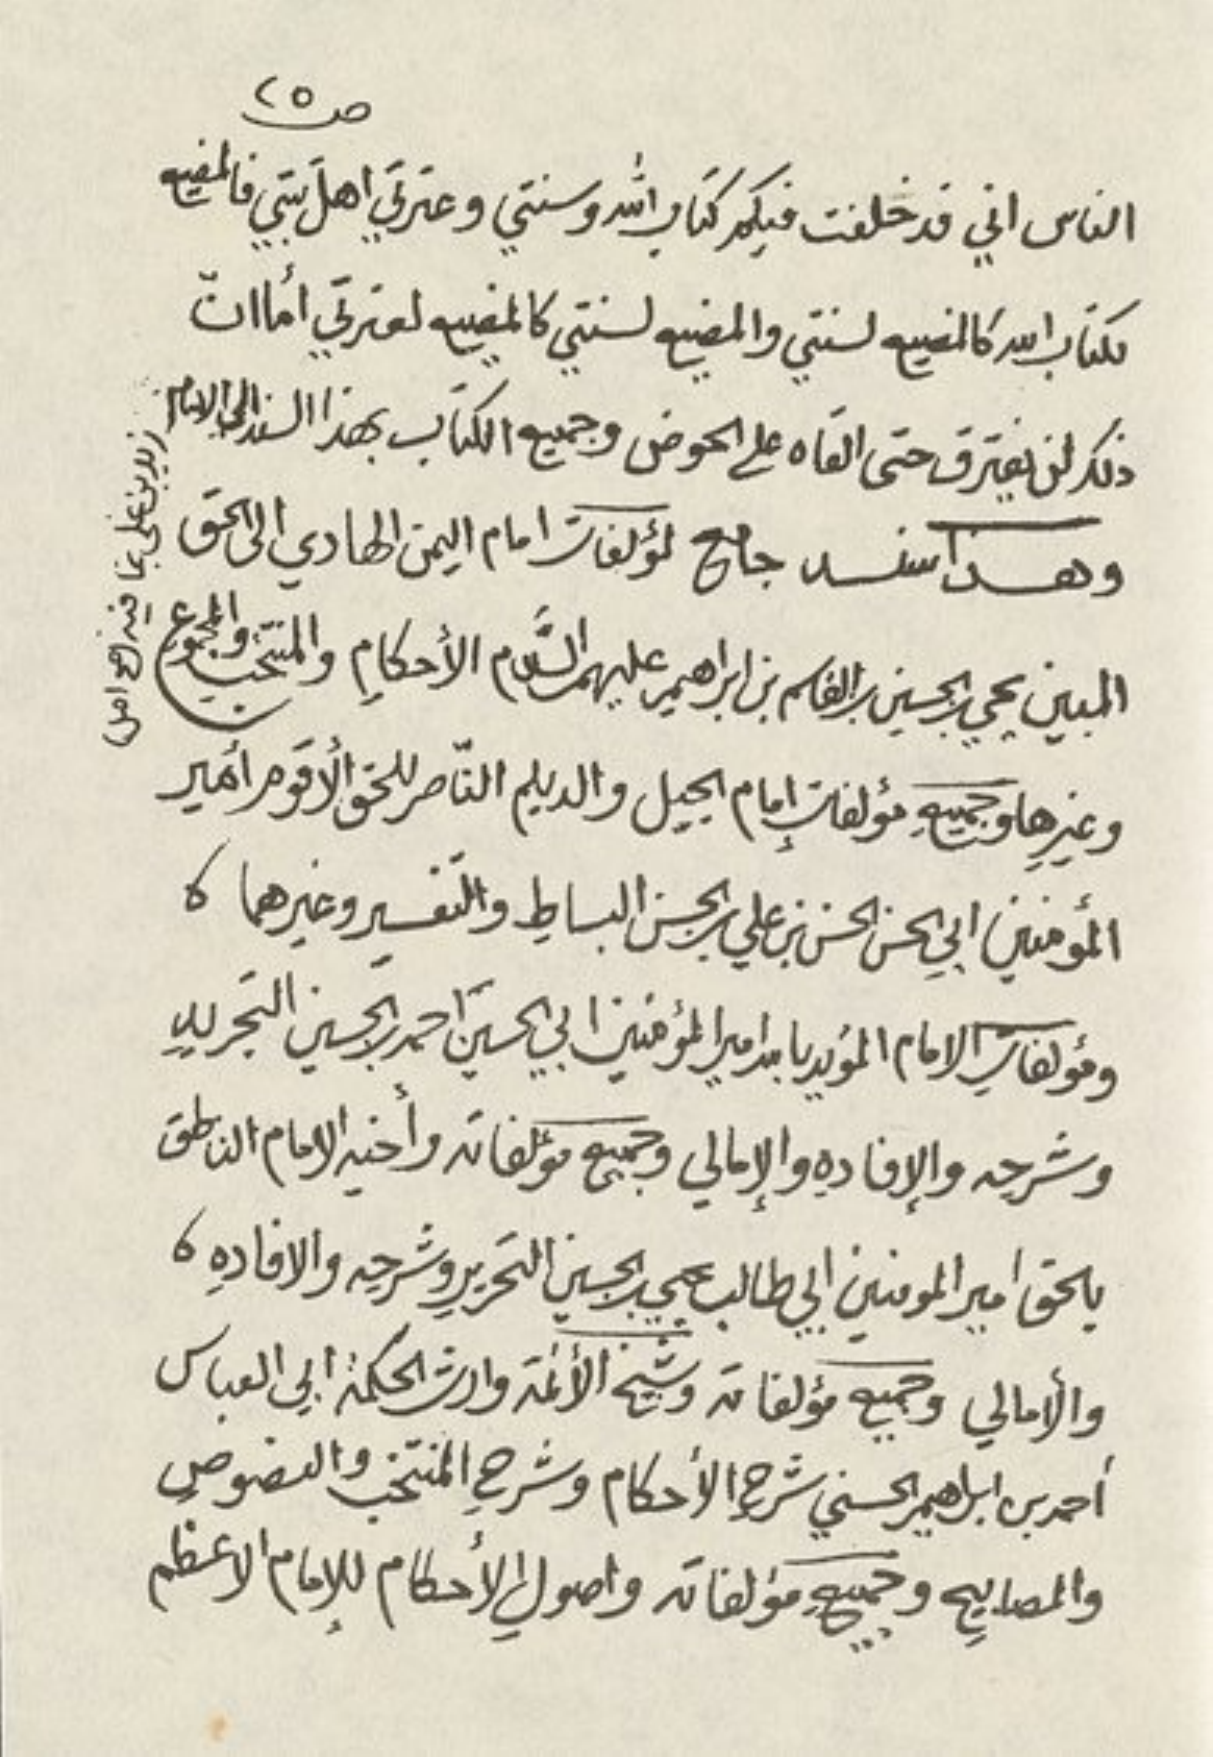 ص ٢٥
الناس اني قد خلفت فيكم كتاب الله وسنتي وعترتي اهل بيتي فالمضيع
لكتاب الله كالمضيع لسنتي والمضيع لسنتي كالمضيع لعترتي أما ان
ذلك لن يفترق حتى القاه على الحوض وجميع الكتاب بهذا السند الى الامام
زيد بن علي بما فيه
وهذا سند جامع لمؤلفات امام اليمن الهادي الى الحق
المبين يحيى بن الحسين بن القاسم بن ابراهيم عليهم السَّلام الأحكامِ والمنتخبِ والمجموعِ
وغيرِها وجميعِ مؤلفات إمام الجيل والديلم النّاصر للحق الأقوم أمير
المؤمنين ابي الحسن الحسن بن علي بن الحسن البساطِ والتّفسير وغيرهما
ومؤلفاتِ الامام المؤيد بالله امير المؤمنين ابي الحسين احمد بن الحسين التجريدِ
وشرحِه والإفادهِ والإمالي وجميع مؤلفاته وأخيه الامام الناطق
بالحق امير المومنين ابي طالب يحيى بن الحسين التحريرِ وشرحِه والافادهِ
والأمالي وجميع مؤلفاته وشيخ الأئمة وارث الحكمة ابي العباس
أحمد بن ابراهيم الحسني شرحِ الأحكام وشرحِ المنتخب والنصوصِ
والمصابيحِ وجميعِ مؤلفاته واصولِ الأحكام للإمام الاعظم